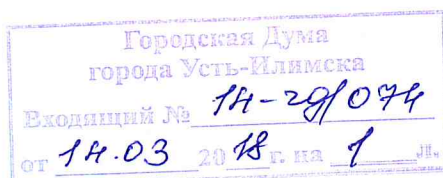 Городская Дума
города Усть-Илимска
Входящий № 14-гд/074
от 14.03 2018 г. на 1 л.